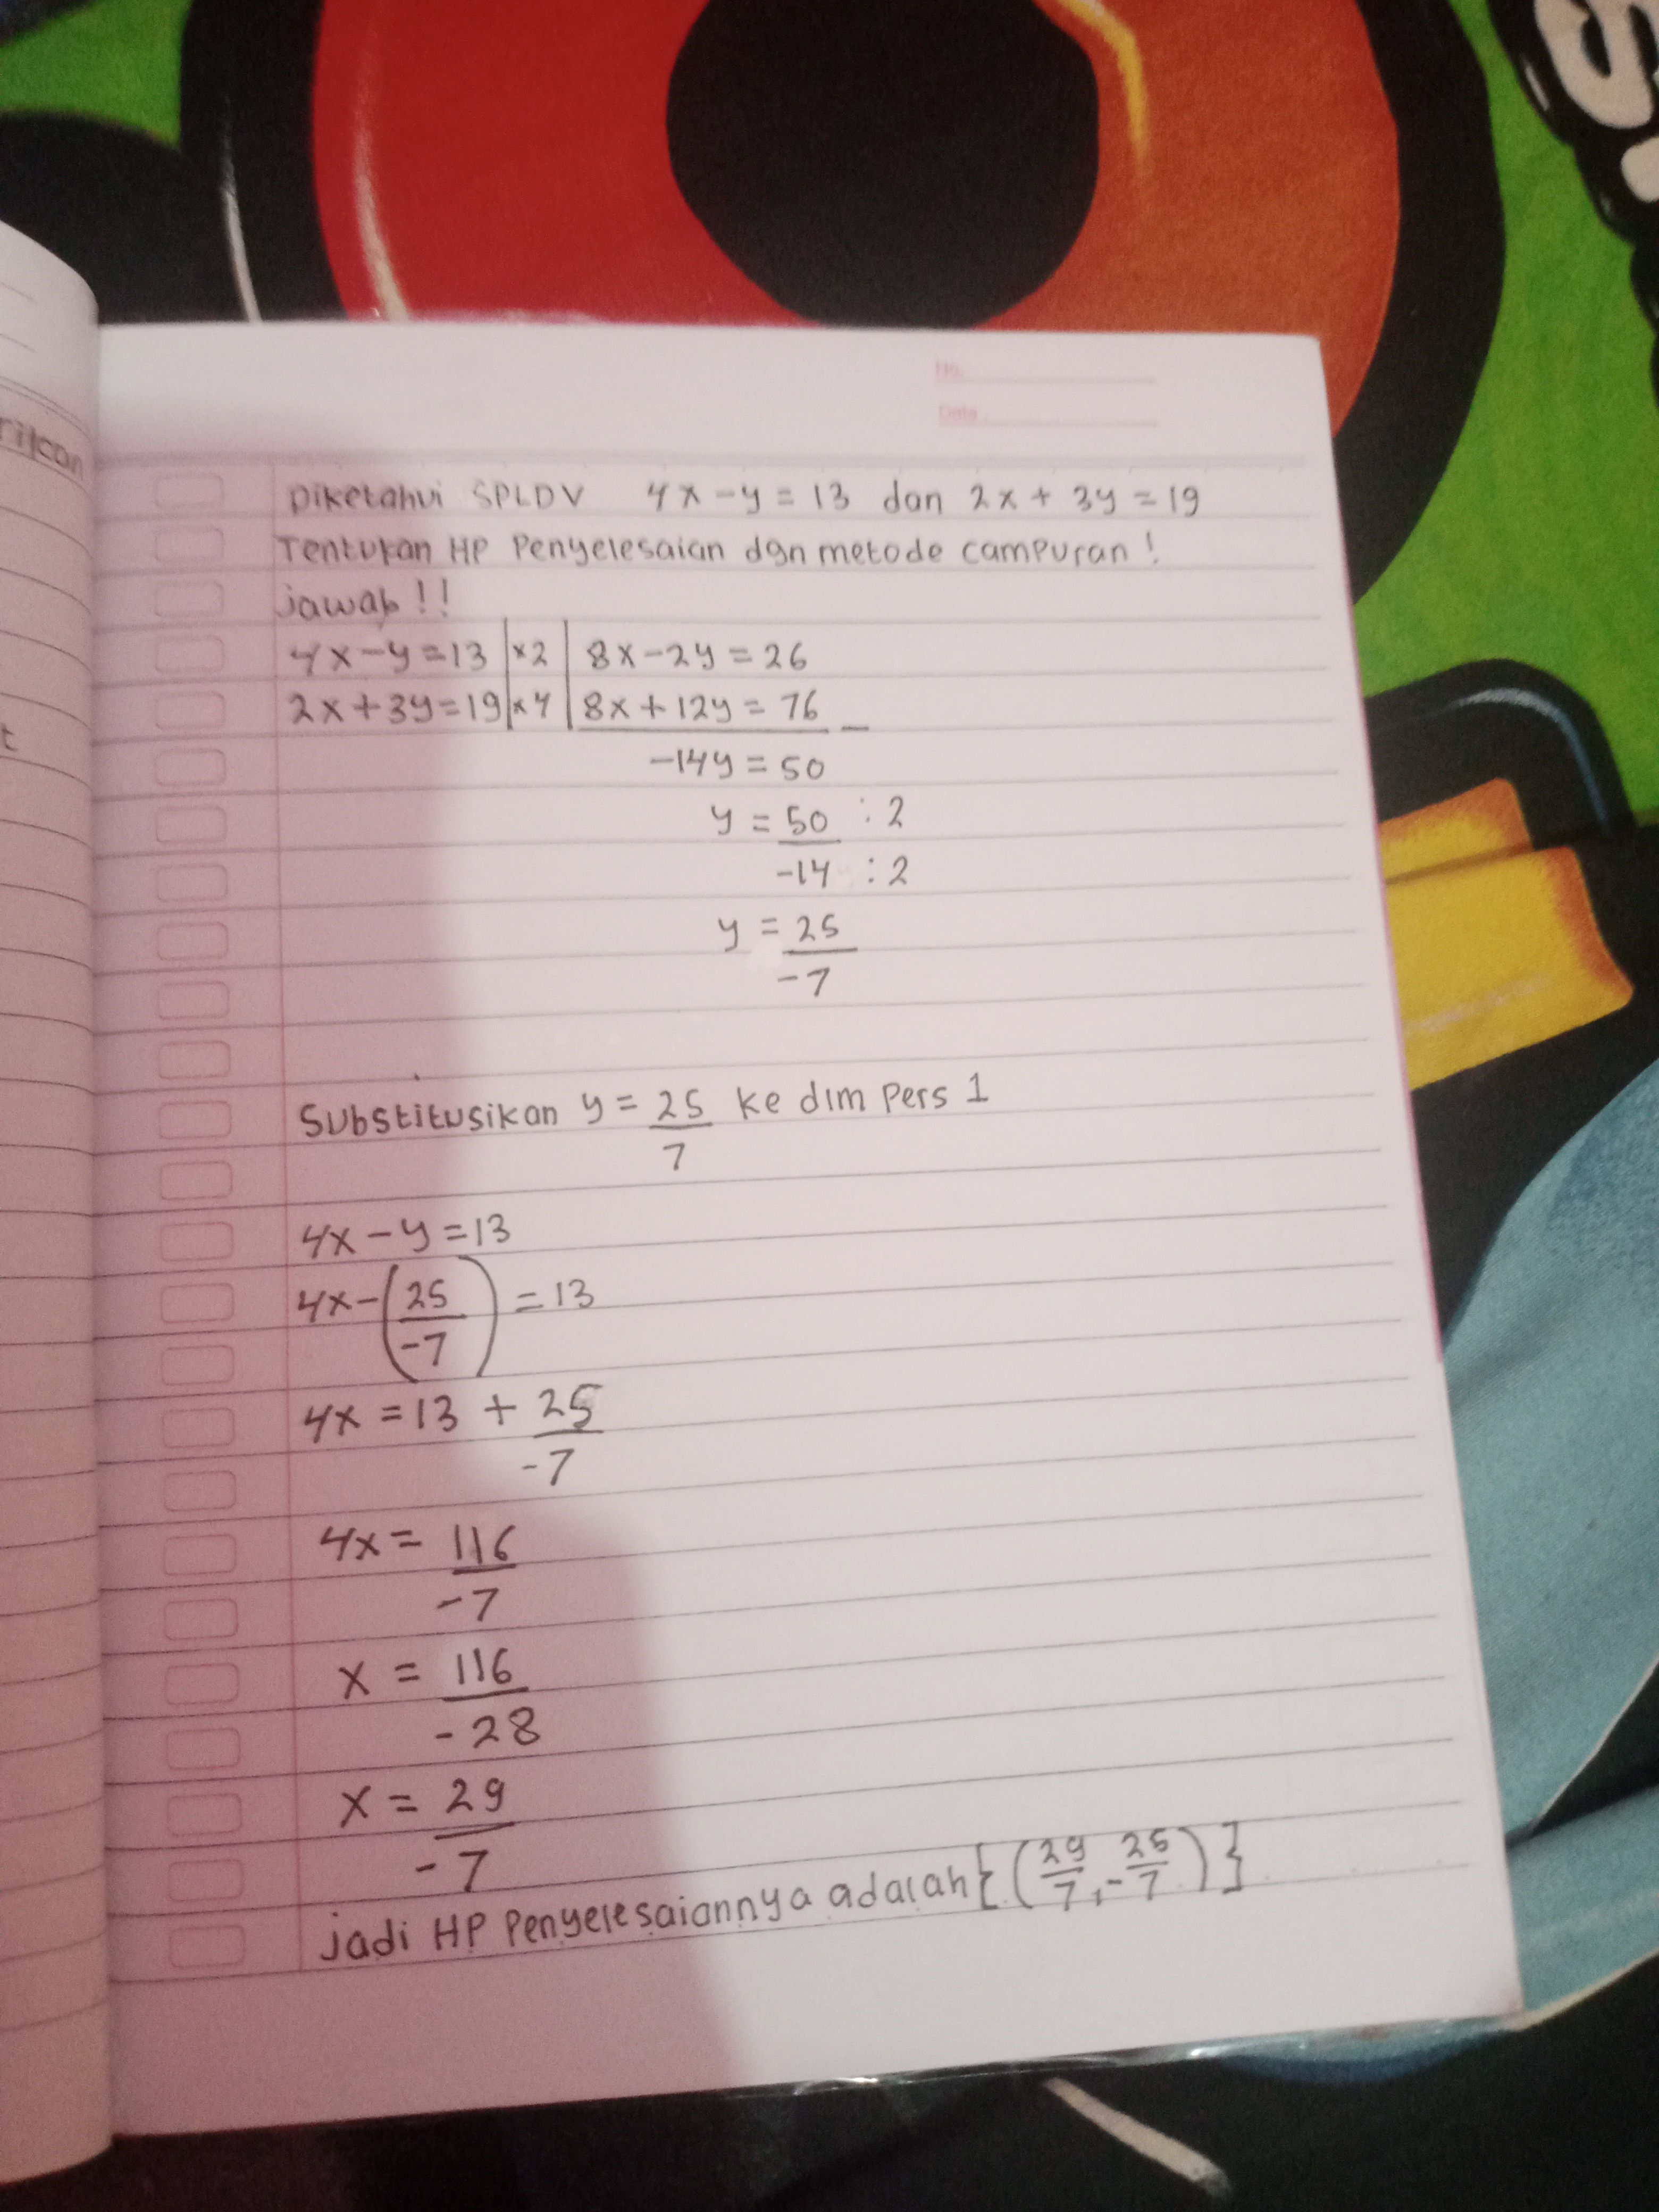 No.
Date
rikan
t
Diketahui SPLDV 4x - y = 13 dan 2x + 3y = 19
Tentukan HP Penyelesaian dgn metode campuran !
jawab !!
4x - y = 13 | ×2 | 8x - 2y = 26
2x + 3y = 19 | ×4 | 8x + 12y = 76 _
-14y = 50
y = 50 : 2
-14 : 2
y = 25
-7
Substitusikan y = 25 ke dlm Pers 1
7
4x - y = 13
4x - (25/-7) = 13
4x = 13 + 25
-7
4x = 116
-7
x = 116
-28
x = 29
-7
jadi HP Penyelesaiannya adalah {(29/7, -25/7)}